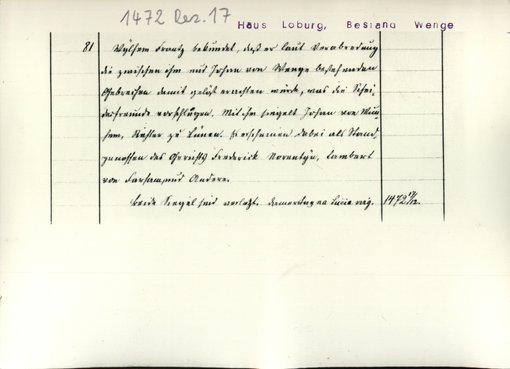 1472 Dez. 17
Haus Loburg, Bestand Wenge
81 Wylhem Frantz bekundet, daß er laut Verabredung
die zwischen ihm und Johan von Wenge bestehenden
Gebrechen damit gelöst erachten würde, was die Schei-
desfreunde vorschlügen. Mit ihm siegelt Johan von
hem, Richter zu Lünen. Es erschienen dabei als Stand-
genossen des Gerichts Frederick Norentyn, Lambert
von Farham und Andere.
beide Siegel sind verletzt. donnersdag na Lucie virg. 1472 17/12.